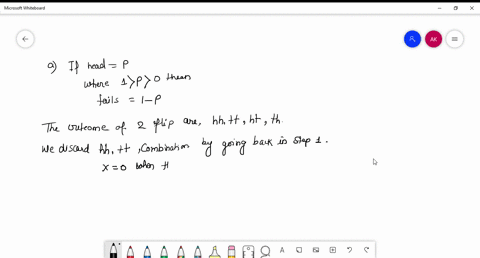 Microsoft Whiteboard
AK
a) If head = P
where 1 > P > 0 then
tails = 1 - P
The outcome of 2 flip are, hh, tt, ht, th.
We discard hh, tt, combination by going back in step 1.
x = 0 when tt